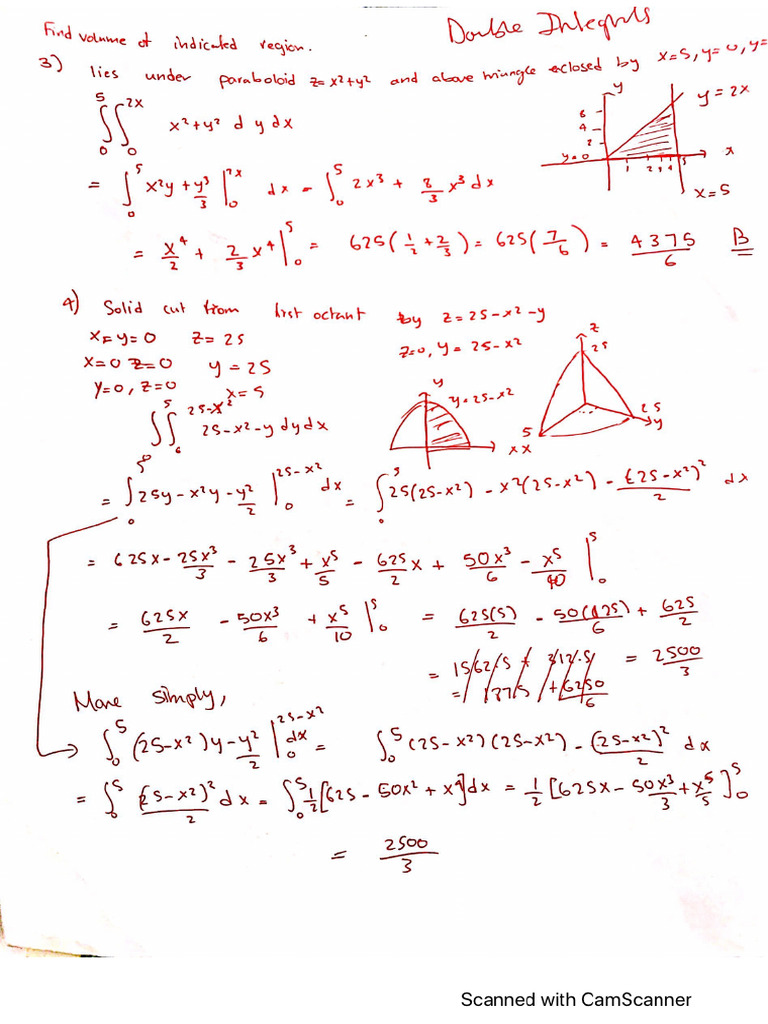 Double Integrals
Find volume of indicated region.
3) lies under paraboloid z=x²+y² and above triangle enclosed by x=5, y=0, y=
∫₀⁵∫₀²ˣ x²+y² d y dx
= ∫₀⁵ x²y + y³/3 |₀²ˣ dx = ∫₀⁵ 2x³ + 8/3 x³ dx
y
y=2x
6
4
2
y=0
1 2 3 4 5
x
x=5
= x⁴/2 + 2/3 x⁴ |₀⁵ = 625(1/2 + 2/3) = 625(7/6) = 4375/6 B
4) Solid cut from first octant by z=25-x²-y
x=y=0 z=25
z=0, y=25-x²
x=0 z=0 y=25
y=0, z=0 x=5
y
y=25-x²
x x
z
25
5
25
y
∫₀⁵∫₀²⁵⁻ˣ² 25-x²-y dydx
= ∫₀⁵ 25y-x²y-y²/2 |₀²⁵⁻ˣ² dx = ∫₀⁵ 25(25-x²) - x²(25-x²) - (25-x²)²/2 dx
= 625x - 25x³/3 - 25x³/3 + x⁵/5 - 625/2 x + 50x³/6 - x⁵/10 |₀⁵
= 625x/2 - 50x³/6 + x⁵/10 |₀⁵ = 625(5)/2 - 50(125)/6 + 625/2
= 2500/3
More simply,
∫₀⁵ (25-x²)y-y²/2 |₀²⁵⁻ˣ² dx = ∫₀⁵ (25-x²)(25-x²) - (25-x²)²/2 dx
= ∫₀⁵ (25-x²)²/2 dx = ∫₀⁵ 1/2[625-50x²+x⁴]dx = 1/2[625x-50x³/3+x⁵/5]₀⁵
= 2500/3
Scanned with CamScanner